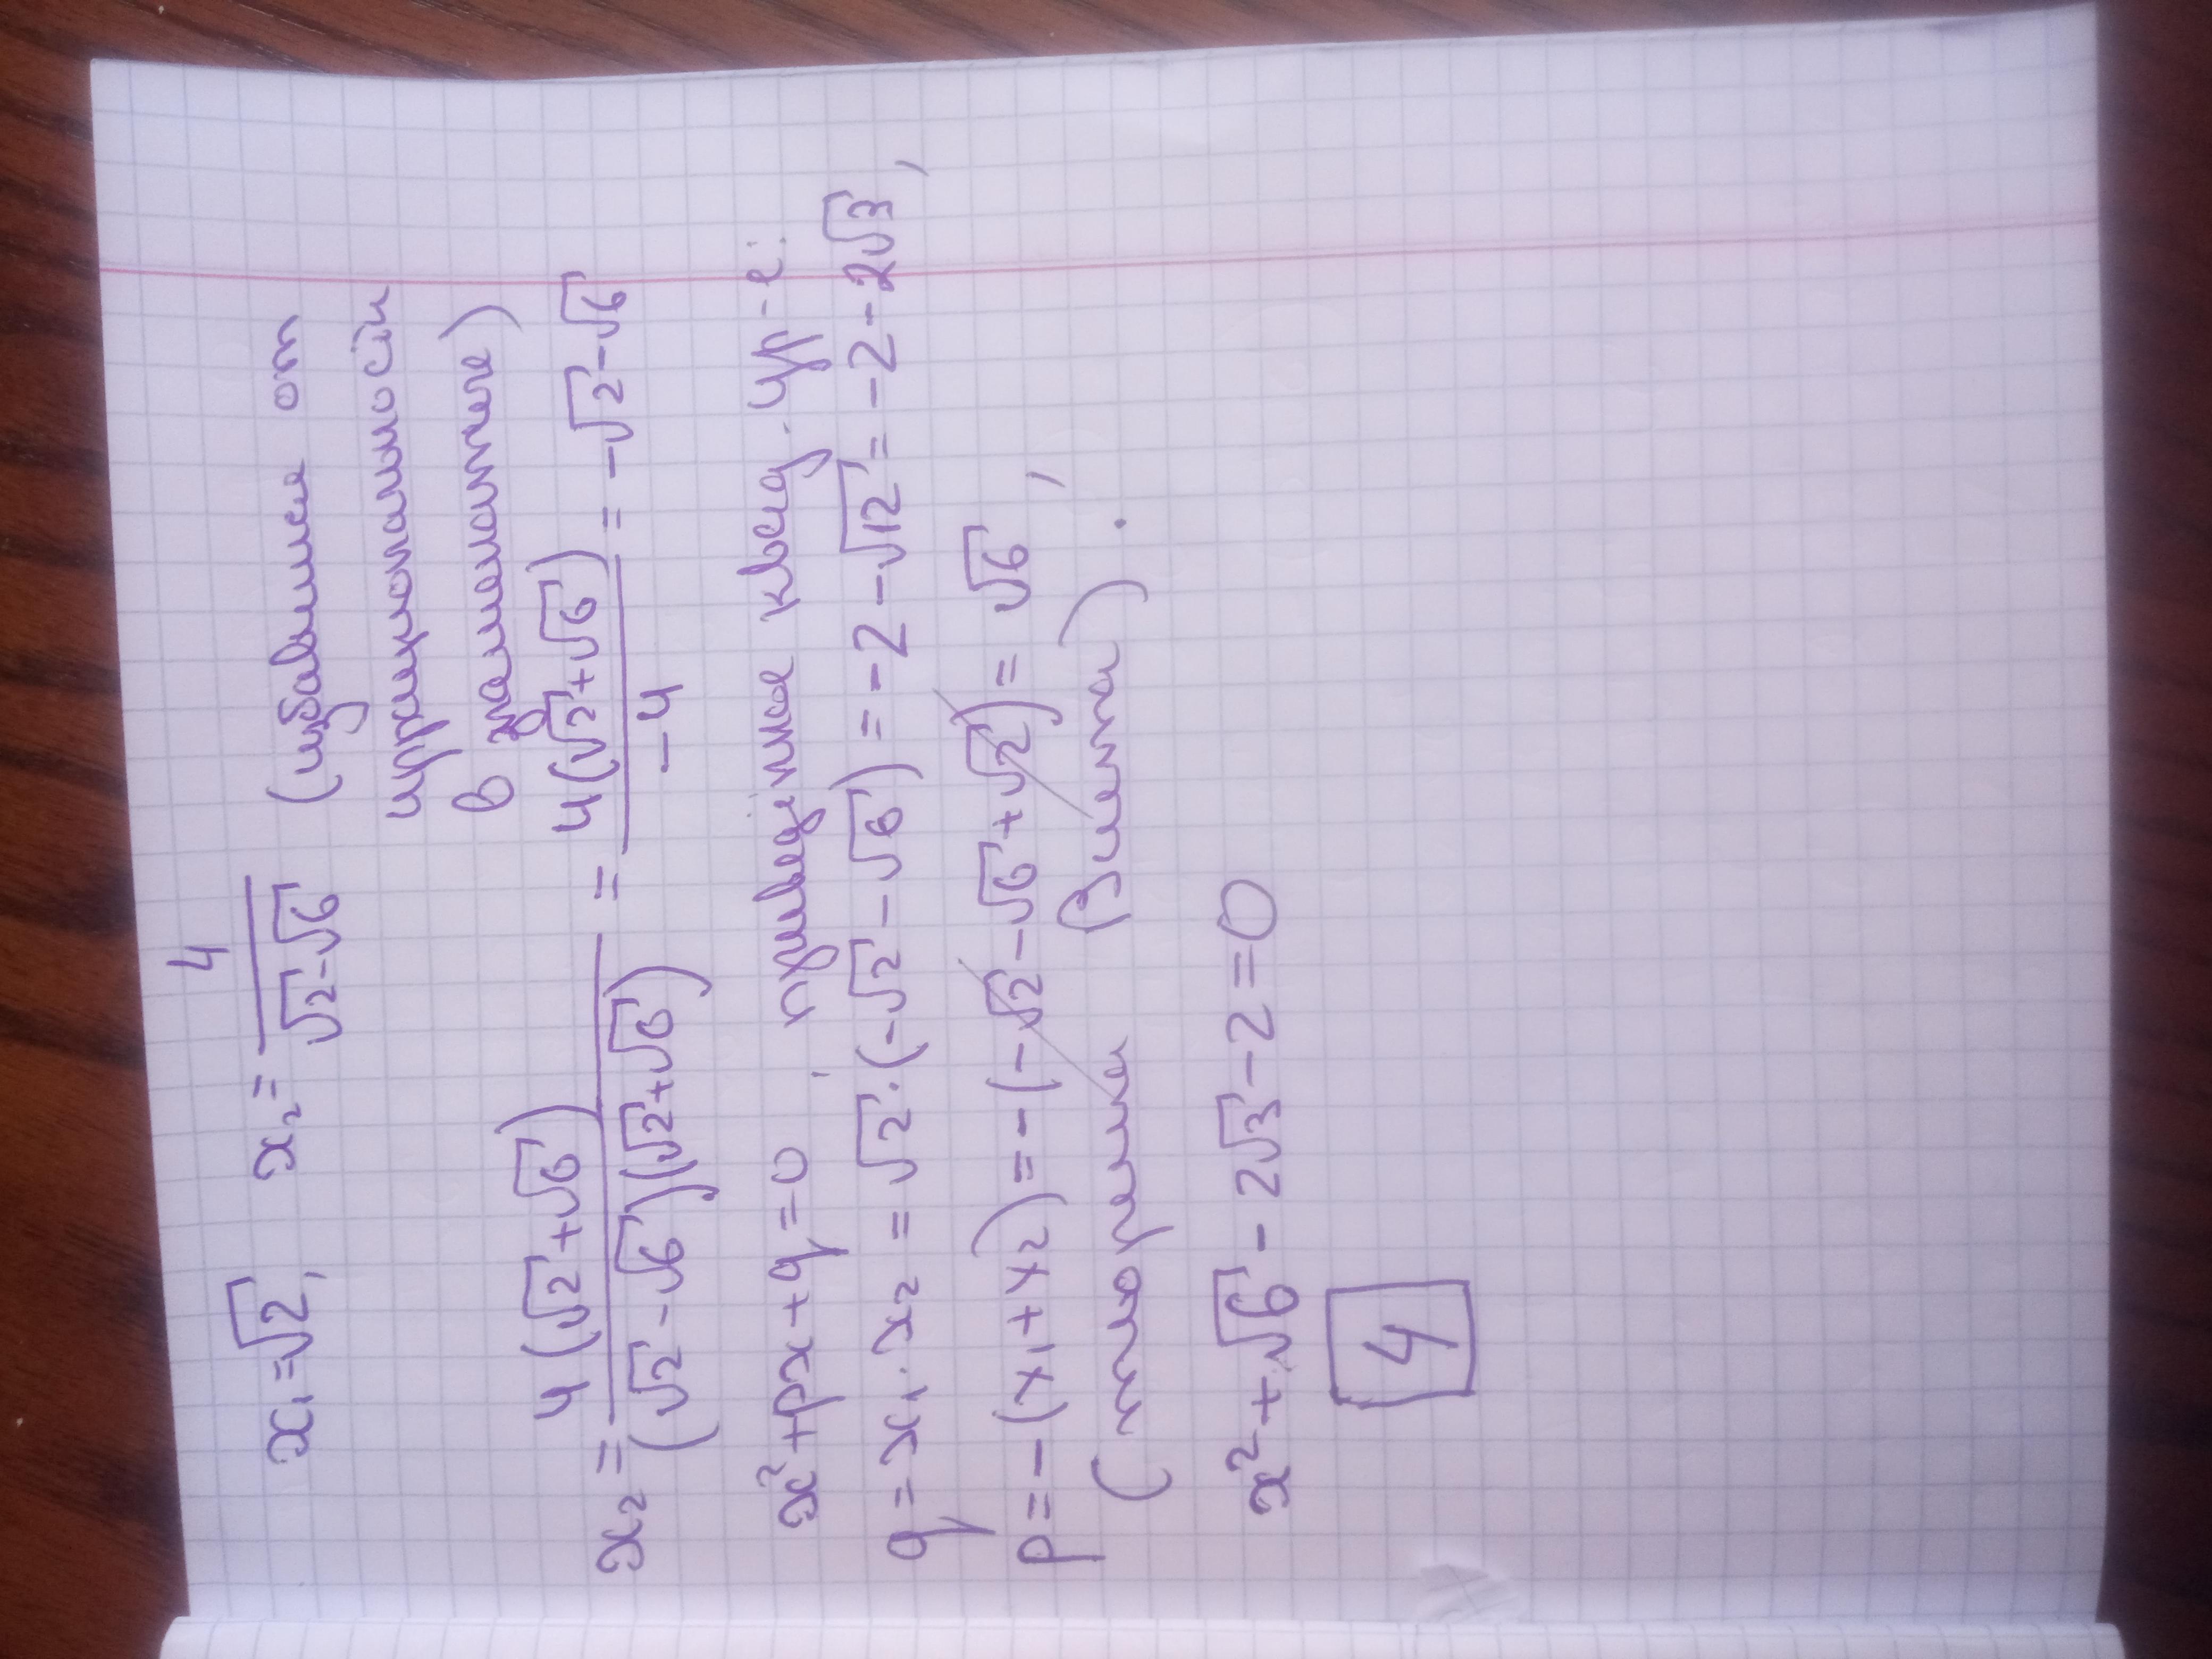 x₁ = √2, x₂ = 4/(√2 - √6) (избавимся от
иррациональности
в знаменателе)
x₂ = 4(√2 + √6)/((√2 - √6)(√2 + √6)) = 4(√2 + √6)/-4 = -√2 - √6
x² + px + q = 0, приведённое квад. ур-е:
q = x₁ · x₂ = √2 · (-√2 - √6) = -2 - √12 = -2 - 2√3,
p = -(x₁ + x₂) = -(-√2 - √6 + √2) = √6,
(теорема Виета).
x² + √6 - 2√3 - 2 = 0
4